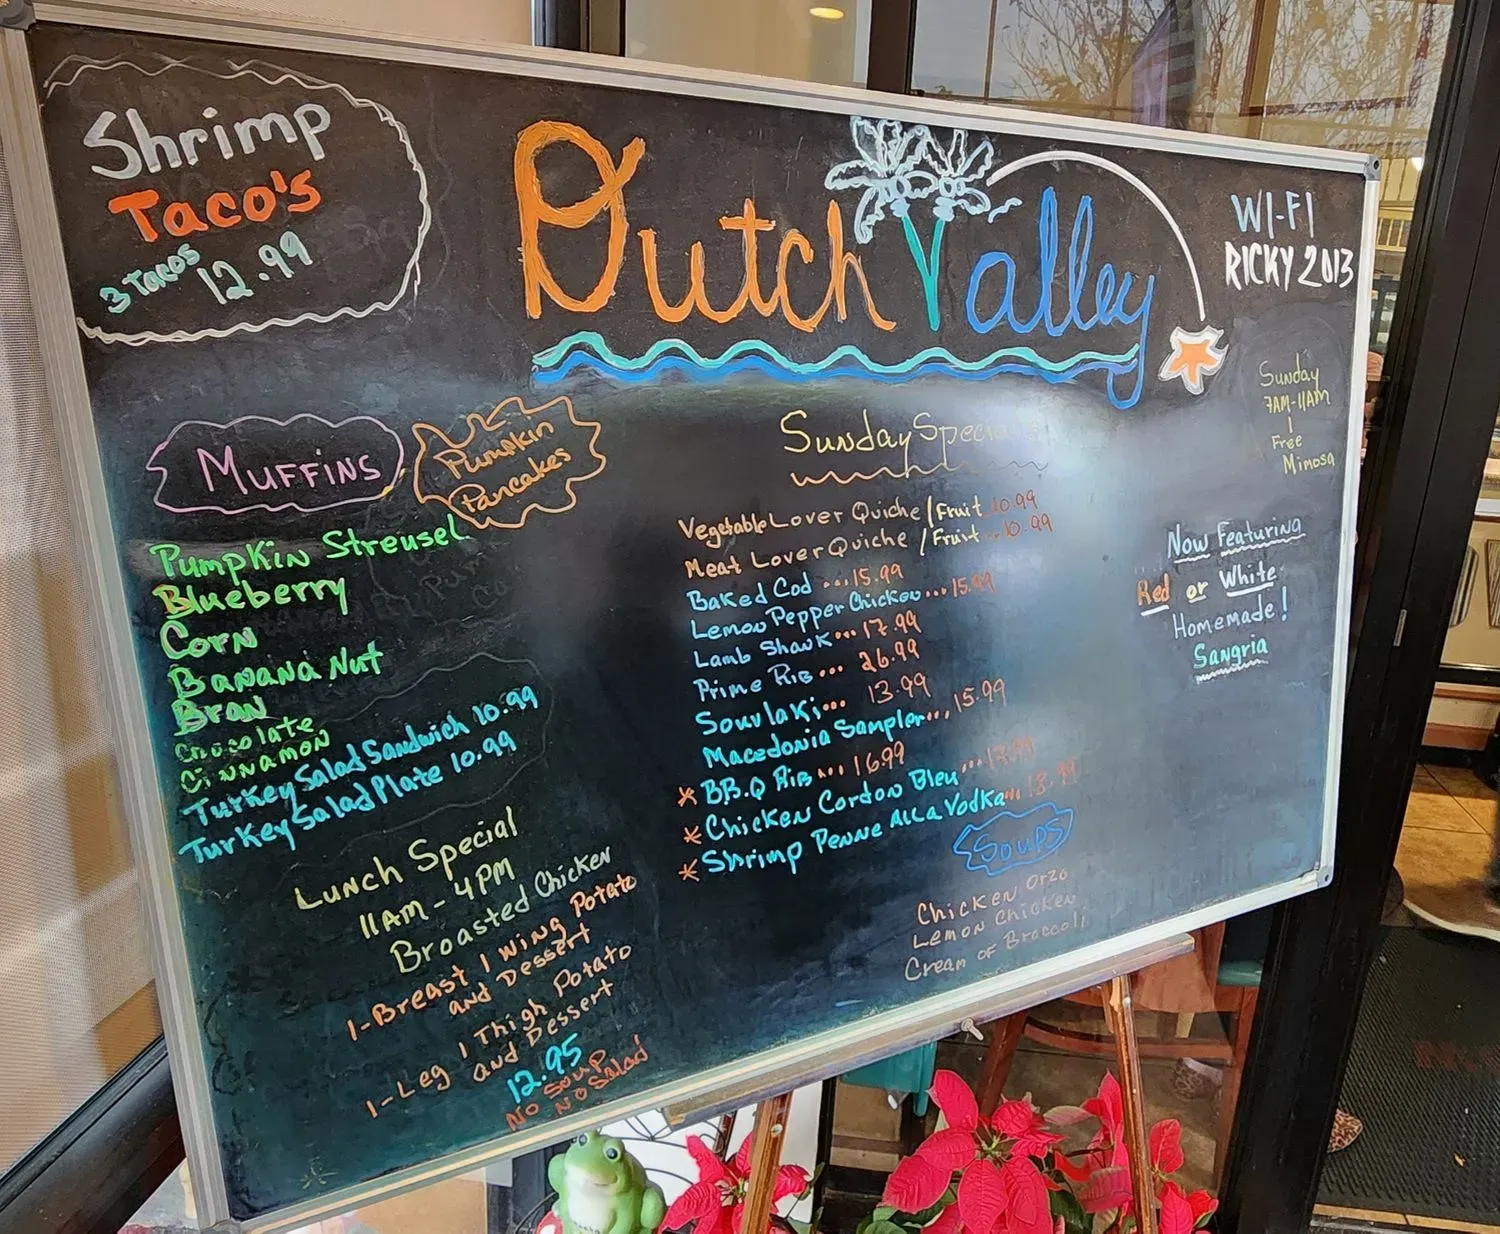 Shrimp
Taco's
3 Tacos 12.99
Dutch Valley
WI-FI
RICKY 2013
Sunday
7AM-11AM
Free
Mimosa
MUFFINS
Pumpkin
Pancakes
Pumpkin Streusel
Blueberry
Corn
Banana Nut
Bran
Chocolate
Cinnamon
Turkey Salad Sandwich 10.99
Turkey Salad Plate 10.99
Lunch Special
11AM - 4PM
Broasted Chicken
1-Breast 1 Wing Potato
and Dessert
1-Leg 1 Thigh Potato
and Dessert
12.95
No Soup
No Salad
Sunday
Vegetable Lover Quiche / Fruit 10.99
Meat Lover Quiche / Fruit ... 10.99
Baked Cod ... 15.99
Lemon Pepper Chicken ... 15.99
Lamb Shank ... 17.99
Prime Rib ... 26.99
Souvlaki ... 13.99
Macedonia Sampler ... 15.99
* BB.Q Rib ... 16.99
* Chicken Cordon Bleu ...
* Shrimp Penne Alla Vodka ...
Soups
Chicken Orzo
Lemon Chicken
Cream of Broccoli
Now Featuring
Red or White
Homemade!
Sangria